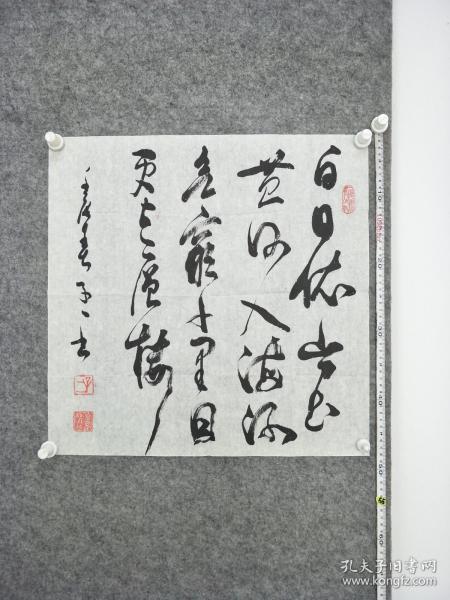 白日依山尽
黄河入海流
欲窮千里目
更上一層楼
孔夫子旧书网
www.kongfz.com